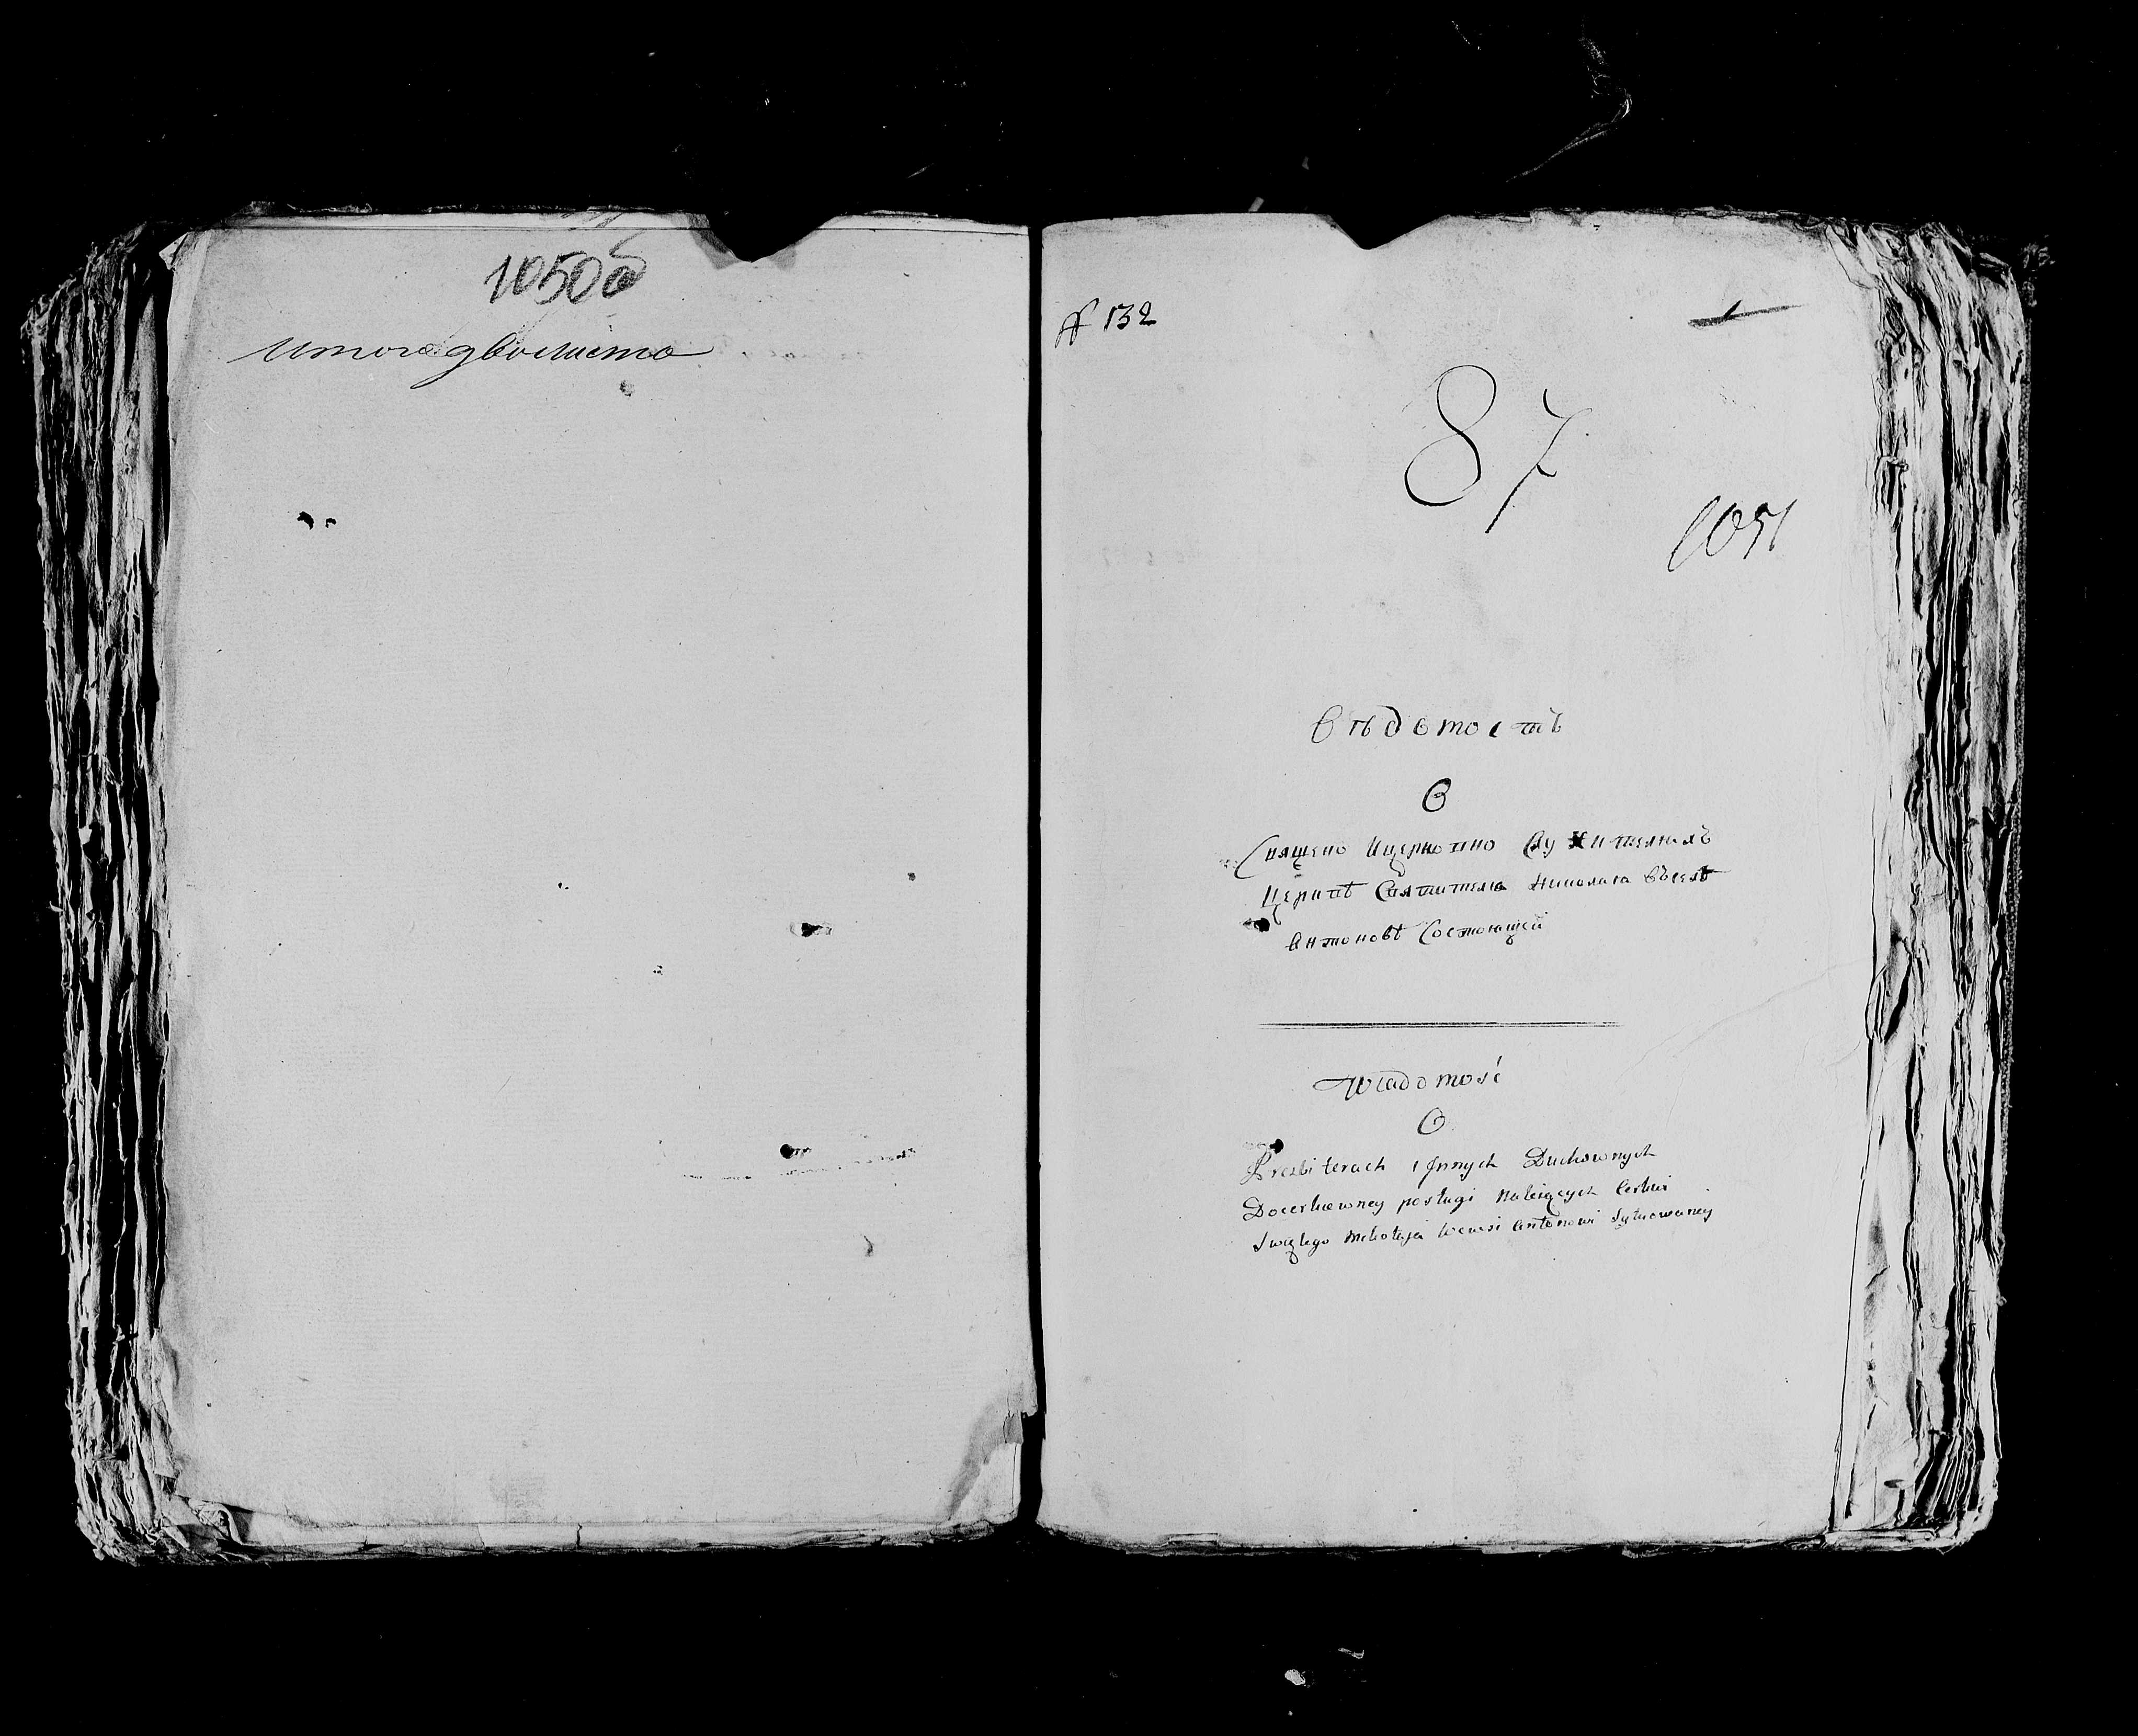 1050об
Итого два листа
№ 132
1
87
1051
Вѣдомостъ
О
Священо Ицерковно Служителяхъ
Церквѣ Святителя Николая Въселѣ
Антоновѣ Состоящей
Wiadomość
O
Prezbiterach i Jnnych Duchownych
Docerkiewney posługi należących Cerkwi
Swiętego Mikołaja wewsi Antonowi Sytuowaney